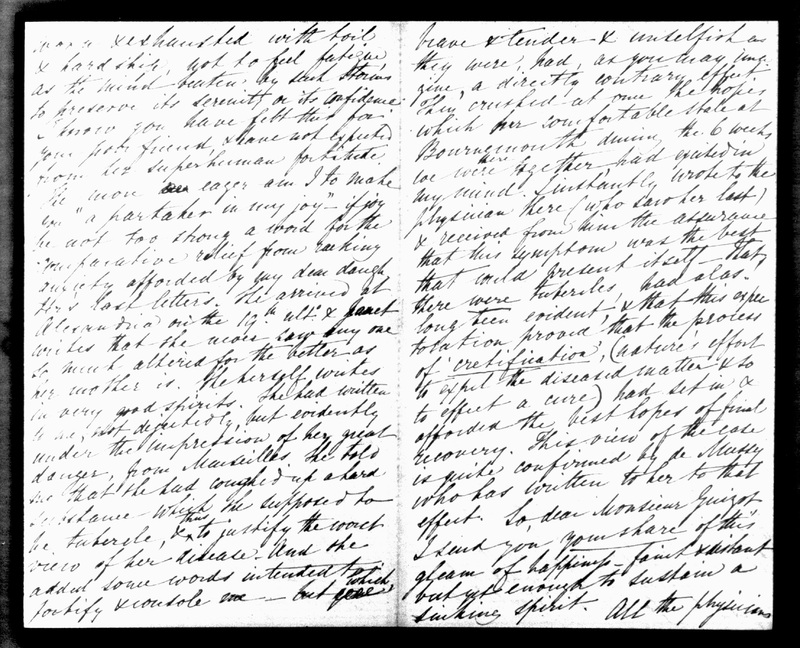 & exhausted with toil
& hardship, not to feel fatigue,
as the mind beaten by such storms
to preserve its serenity or its confidence.
I know you have felt this for
your poor friend, & have not expected
from her superhuman fortitude.
The more eager am I to make
you "a partaker in my joy" – if joy
be not too strong a word for the
comparative relief from racking
anxiety afforded by my dear daugh-
ter's last letters. She arrived at
Alexandria on the 19th ult: & Janet
writes that she never saw any one
so much altered for the better as
her mother is. She herself writes
in very good spirits. She had written
to me, not decidedly, but evidently
under the impression of her great
danger, from Marseilles. She told
me that she had coughed up a hard
substance which she supposed to
be, tubercle, & thus to justify the worst
view of her disease. And she
added some words intended to
fortify & console me – but which,
brave & tender & unselfish as
they were, had, as you may ima-
gine, a directly contrary effect.
They crushed at once the hopes
which her comfortable state at
Bournemouth during the 6 weeks
we were there together had excited in
my mind. I instantly wrote to the
physician there (who saw her last)
& received from him the assurance
that this symptom was the best
that could present itself – that
there were tubercles, had alas.
long been evident, & that this expec-
toration proved that the process
of 'cretification', (nature's effort
to expel the diseased matter & so
to effect a cure) had set in, &
afforded the best hopes of final
recovery. This view of the case
is quite confirmed by de Mussy
who has written to her to that
effect. So dear Monsieur Guizot
I send you your share of this
gleam of happiness – faint & distant
but yet enough to sustain a
sinking spirit. All the physicians